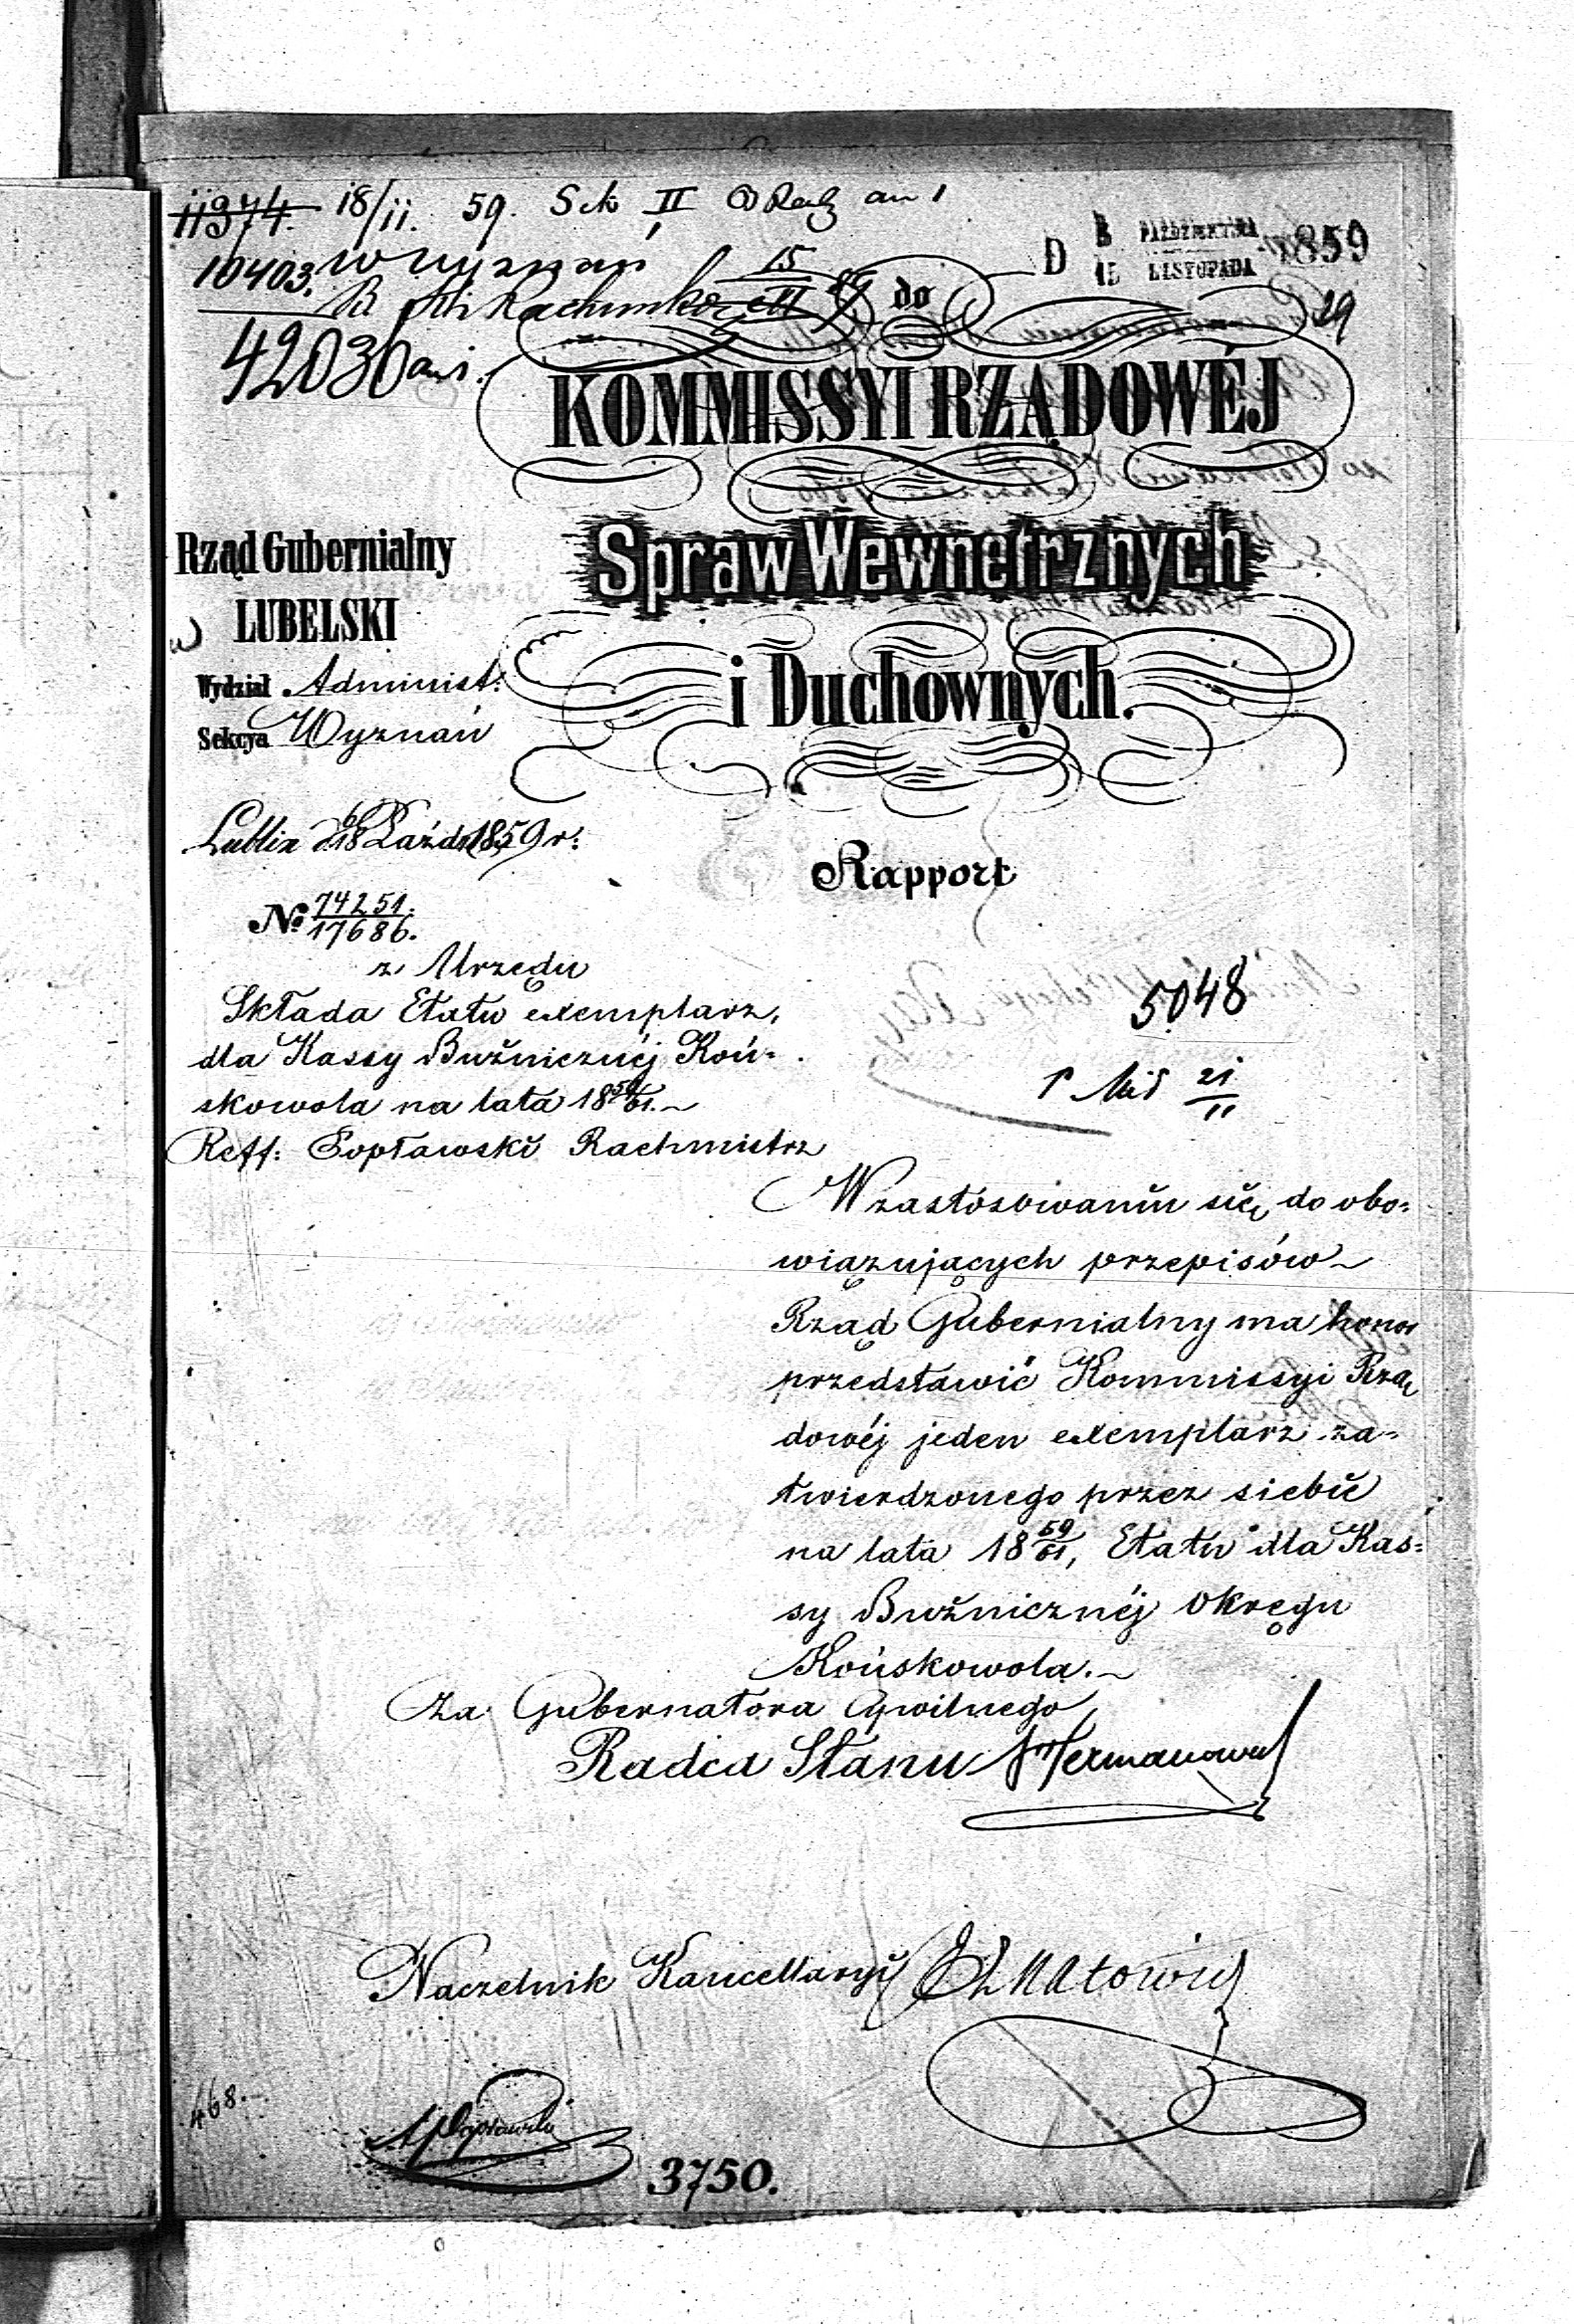 11974. 18/11. 59. Sek II
10403. Wyznań 15
42036
D 3 PAŹDZIERNIKA 1859
15 LISTOPADA
29
do
KOMMISSYI RZĄDOWÉJ
Spraw Wewnętrznych
i Duchownych.
Rząd Gubernialny
LUBELSKI
Wydział Administ:
Sekcya Wyznań
Lublin d 6/18 Paźdr 1859 r:
№ 74251./17686.
z Urzędu
Składa Etatu exemplarz,
dla Kassy Bużnicznéj Koń=
skowola na lata 18 59/61.~
Reff: Popławski Rachmistrz
Rapport
5048
21/11
W zastósowaniu się do obo=
wiązujących przepisów~
Rząd Gubernialny ma honor
przedstawić Kommissyi Rzą
dowéj jeden exemplarz za=
twierdzonego przez siebie
na lata 18 59/61, Etatu dla Kas=
sy Bużnicznéj Okręgu
Końskowola.~
Za Gubernatora Cywilnego
Radca Stanu
Naczelnik Kancellaryi
468.
3750.